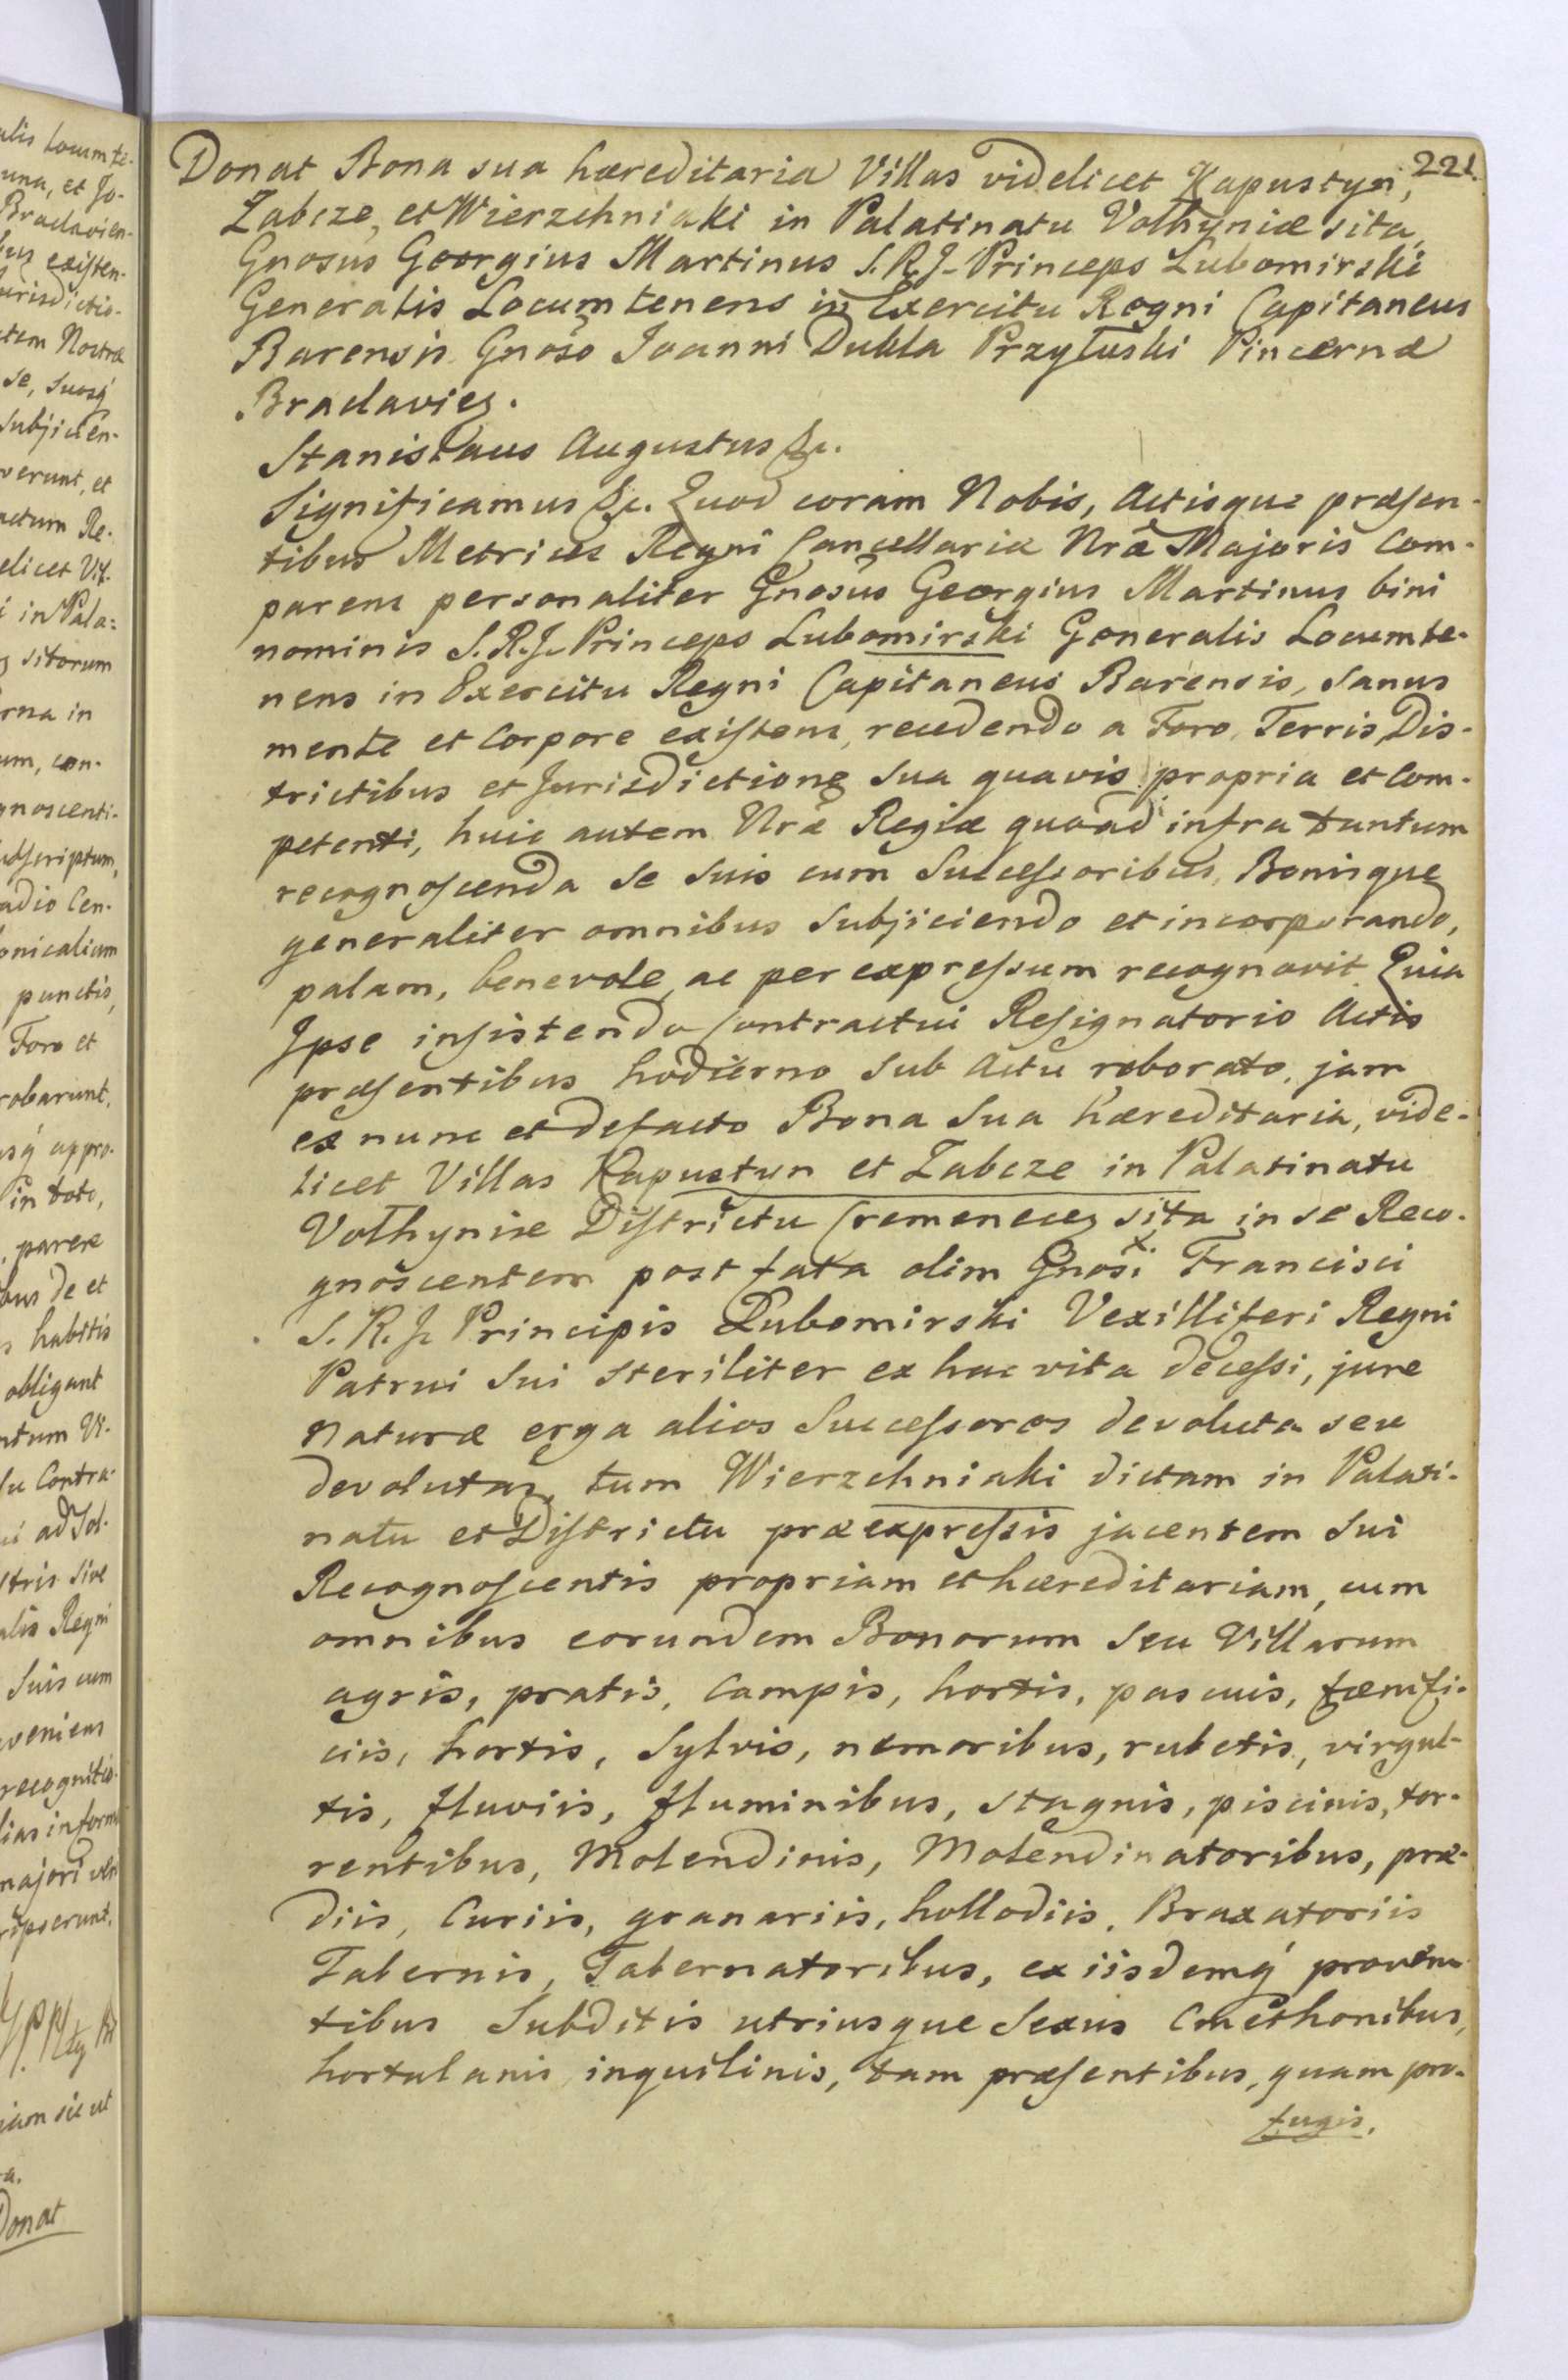 221.
Donat Bona sua hæreditaria Villas videlicet Kapustyn,
Zabcze, et Wierzchniaki in Palatinatu Volhyniæ sita,
Gnosus Georgius Martinus S.R.J. Princeps Lubomirski
Generalis Locumtenens in Exercitu Regni Capitaneus
Barensis Gnoso Joanni Dukla Przyłuski Pincernæ
Braclavien.
Stanislaus Augustus &c.
Significamus &c. Quod coram Nobis, Actisque præsen-
tibus Metrices Regni Cancellariæ Nræ Majoris Com-
parens personaliter Gnosus Georgius Martinus bini
nominis S.R.J. Princeps Lubomirski Generalis Locumte-
nens in Exercitu Regni Capitaneus Barensis, Sanus
mente et Corpore existens, recedendo a Foro, Terris, Dis-
trictibus et Jurisdictione sua quavis propria et Com-
petenti, huic autem Nræ Regiæ quoad infra tantum
recognoscenda se suis cum Successoribus, Bonisque
generaliter omnibus Subjiciendo et incorporando,
palam, benevole, ac per expressum recognovit Quia
Jpse insistendo Contractui Resignatorio Actis
præsentibus hodierno Sub Actu roborato, jam
ex nunc et defacto Bona Sua hæreditaria, vide-
licet Villas Kapustyn et Zabcze in Palatinatu
Volhyniæ Districtu Cremenecen sita in se Reco-
gnoscentem post fata olim Gnosi Francisci
S.R.J. Principis Lubomirski Vexilliferi Regni
Patrui Sui steriliter ex hac vita decessi, jure
naturæ erga alios Successores devoluta seu
devolutas, tum Wierzchniaki dictam in Palati-
natu et Districtu præexpressis jacentem Sui
Recognoscentis propriam et hæreditariam, cum
omnibus eorundem Bonorum Seu Villarum
agris, pratis, Campis, hortis, pascuis, fænifi-
ciis, hortis, Sylvis, nemoribus, rubetis, virgul-
tis, fluviis, fluminibus, stagnis, piscinis, tor-
rentibus, Molendinis, Molendinatoribus, præ-
diis, Curiis, granariis, hollodiis, Braxatoriis
Tabernis, Tabernatoribus, ex iisdemq́ proven-
tibus Subditis utriusque Sexus Cmethonibus,
hortulanis inquilinis, tam præsentibus, quam pro-
fugis.